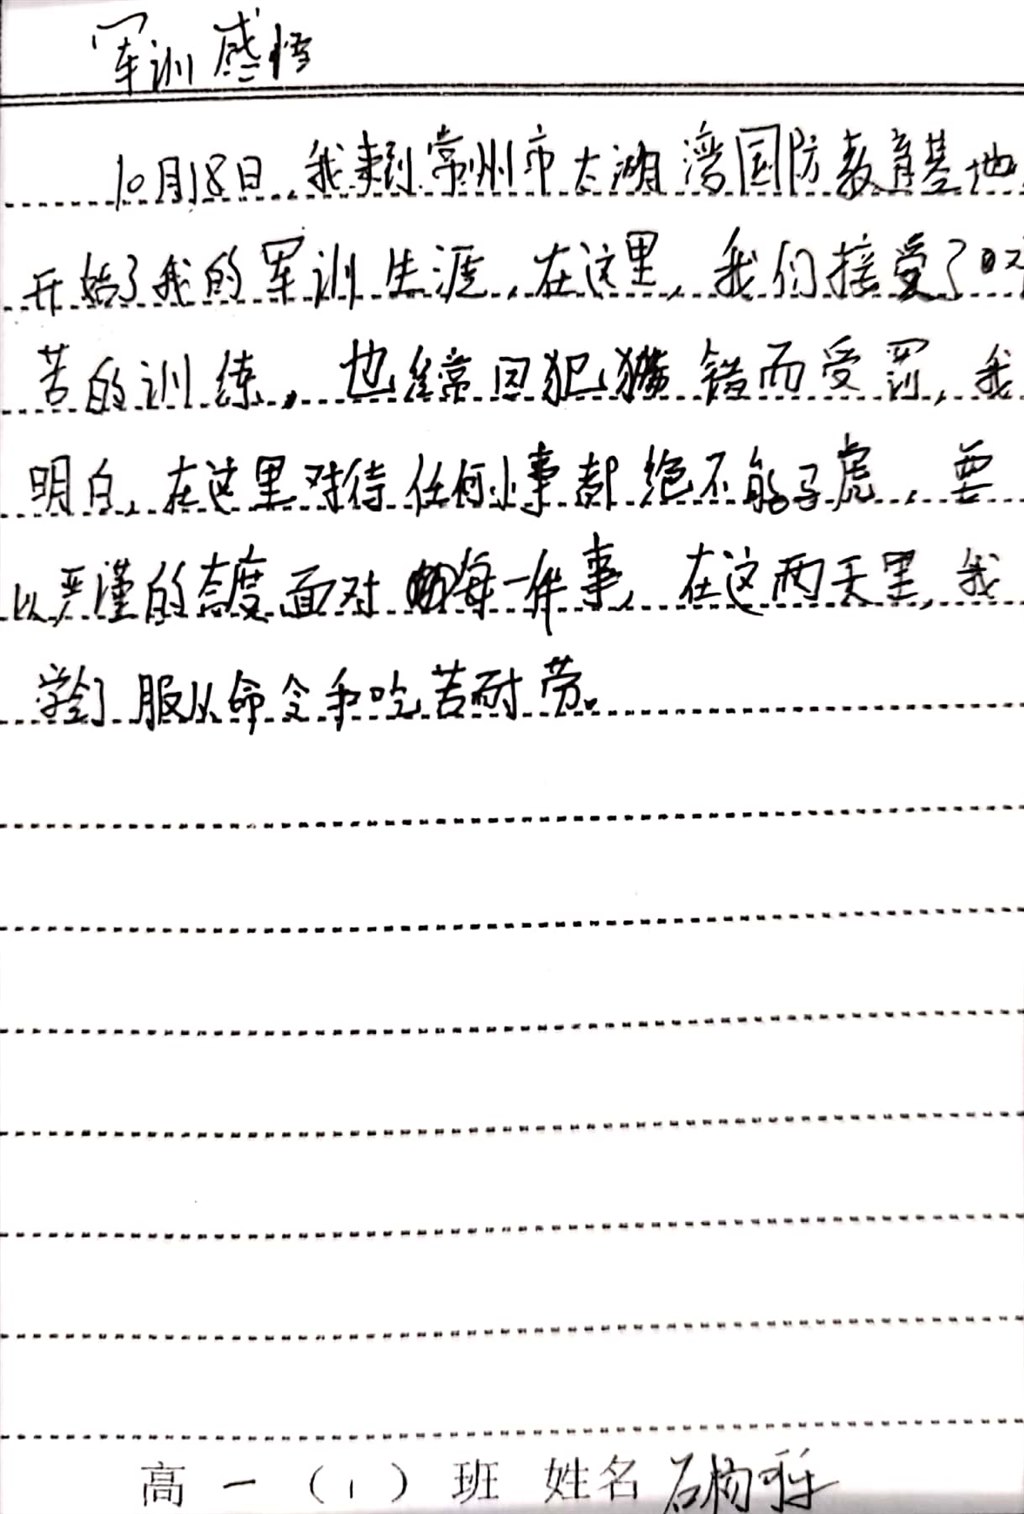 军训感悟
10月18日,我来到常州市太湖湾国防教育基地
开始了我的军训生涯,在这里,我们接受了
苦的训练,也经常因犯错而受罚,我
明白,在这里对待任何小事都绝不能马虎,要
以严谨的态度面对每一件事,在这两天里,我
学会了服从命令和吃苦耐劳。
高一(1)班 姓名 石杨